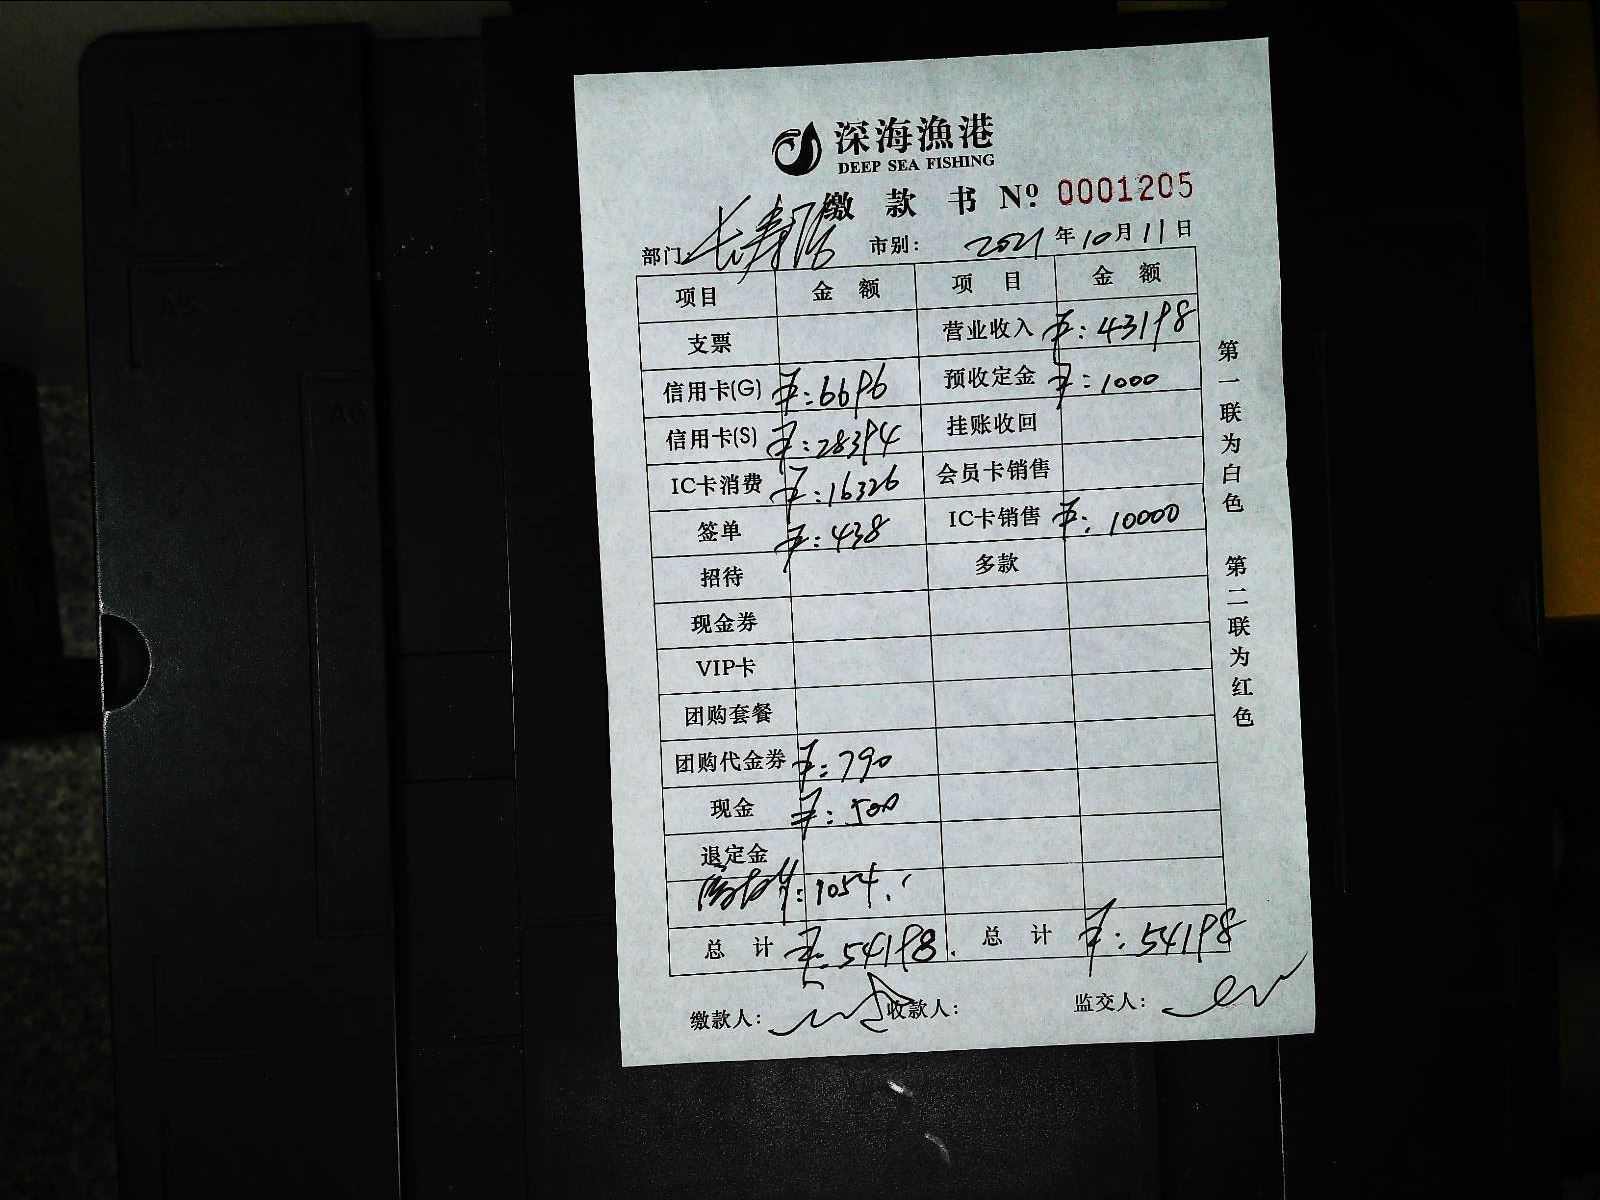 深海渔港
DEEP SEA FISHING
缴款书 Nº 0001205
部门: 长寿路 市别: 2021年10月11日
项目 金额 项目 金额
支票 营业收入 ¥:43198
信用卡(G) ¥:6696 预收定金 ¥:1000
信用卡(S) ¥:28394 挂账收回
IC卡消费 ¥:16326 会员卡销售
签单 ¥:438 IC卡销售 ¥:10000
招待 多款
现金券
VIP卡
团购套餐
团购代金券 ¥:790
现金 ¥:500
退定金
:1054.
总计 ¥:54198. 总计 ¥:54198
缴款人: 收款人: 监交人:
第一联为白色 第二联为红色
A4
A5
A6